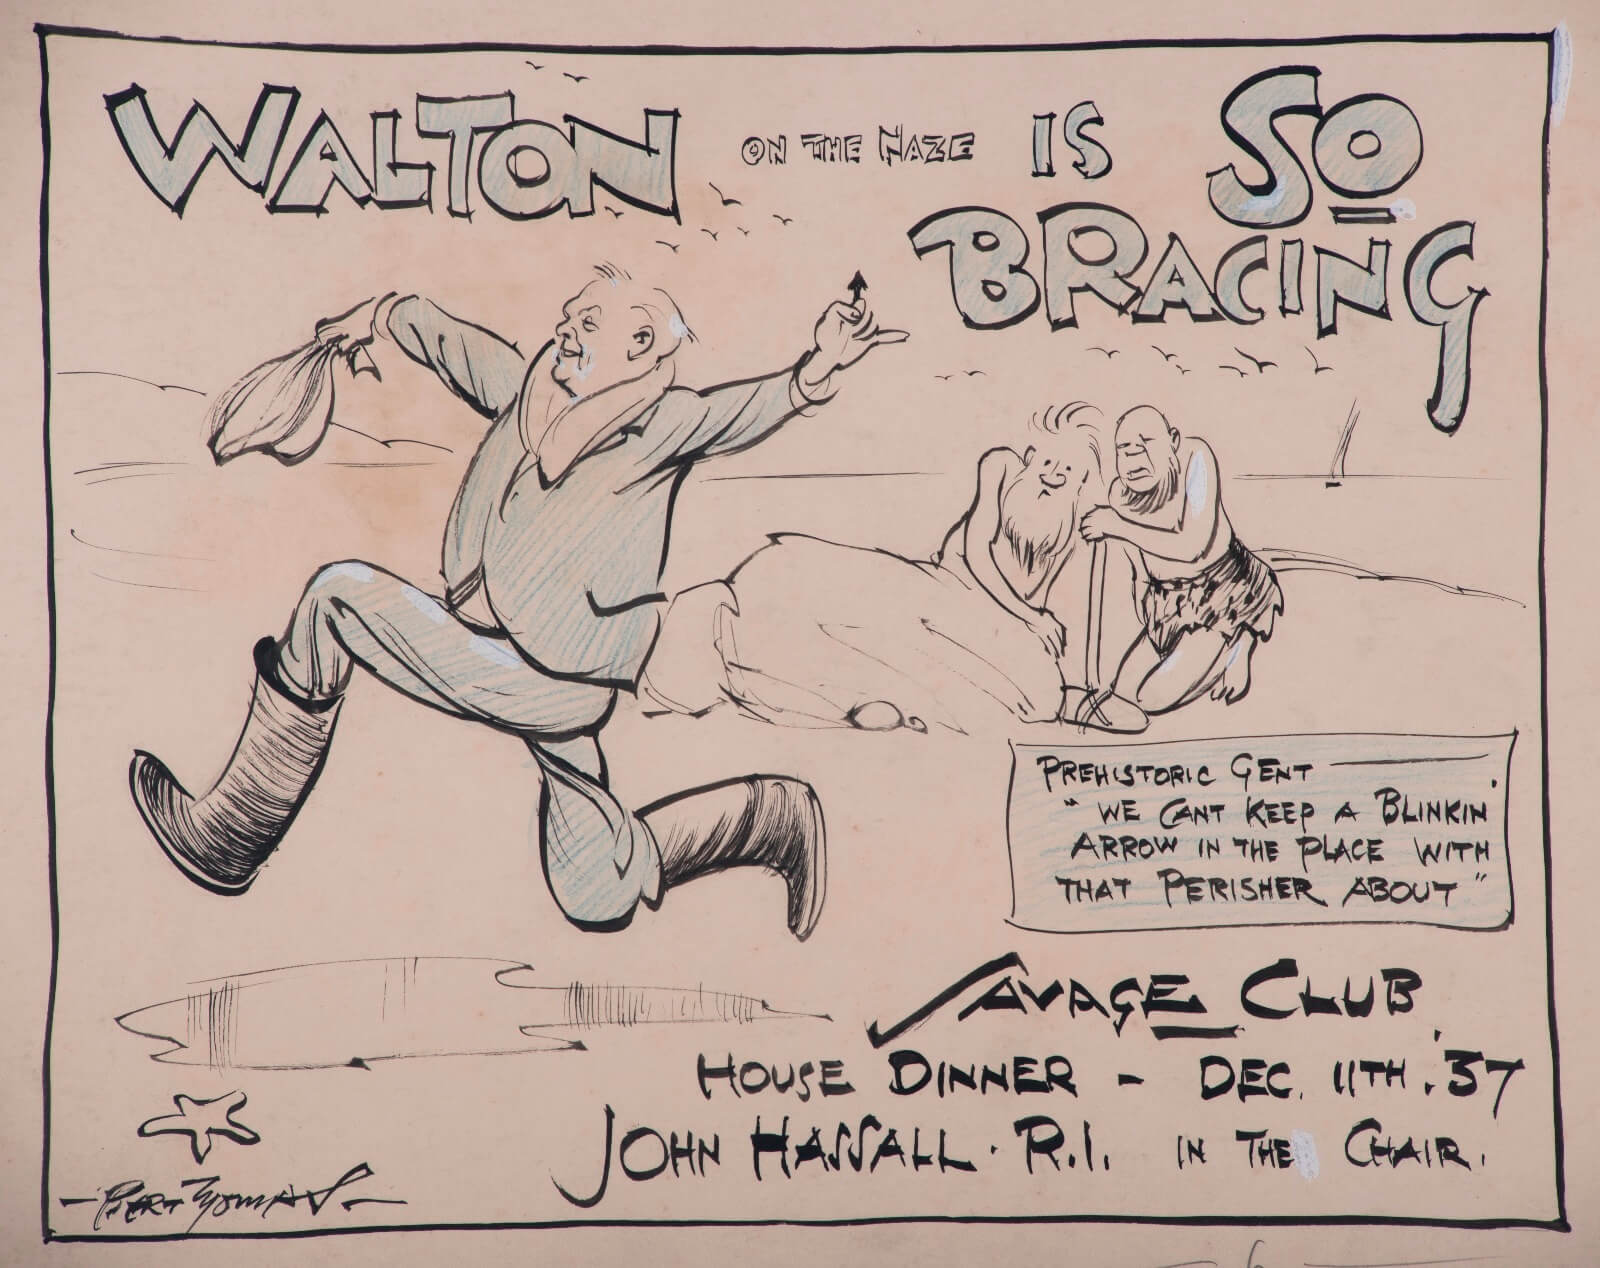 WALTON ON THE NAZE IS SO
BRACING
PREHISTORIC GENT
"WE CANT KEEP A BLINKIN'
ARROW IN THE PLACE WITH
THAT PERISHER ABOUT"
SAVAGE CLUB
HOUSE DINNER - DEC. 11TH. '37
JOHN HASSALL. R.I. IN THE CHAIR.
-BERT THOMAS-